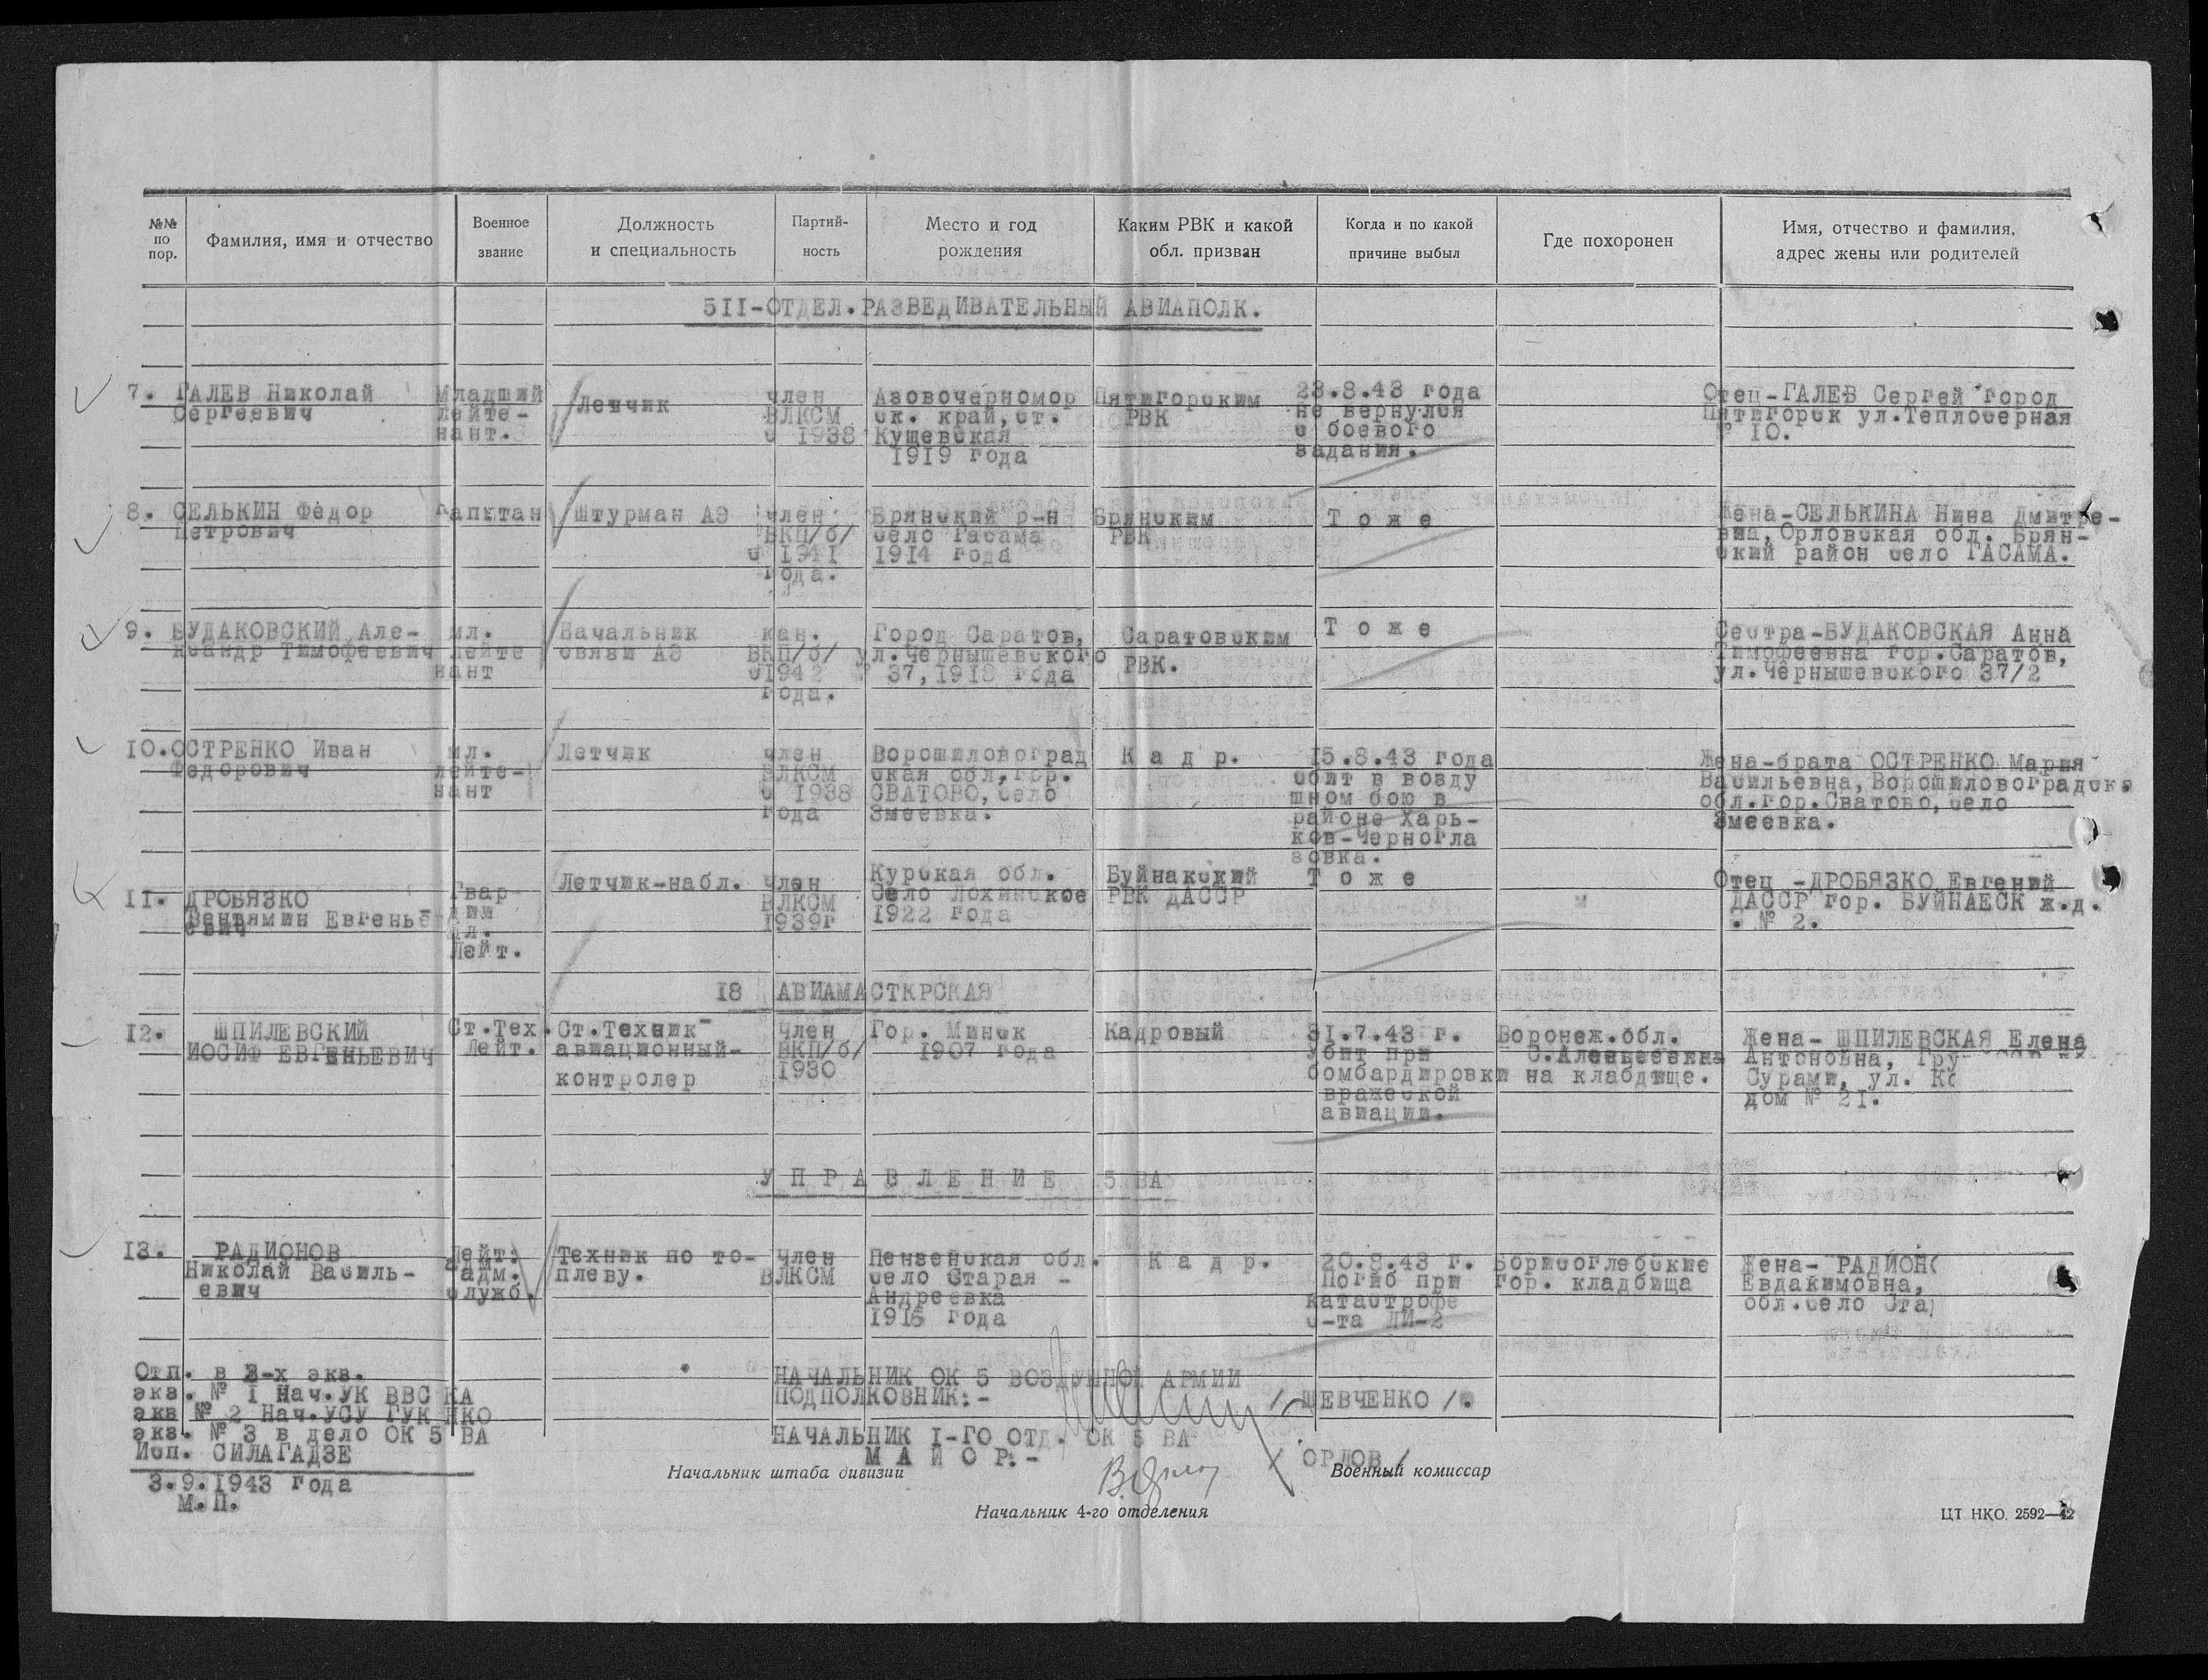 №№ по пор.
Фамилия, имя и отчество
Военное звание
Должность и специальность
Партий-ность
Место и год рождения
Каким РВК и какой обл. призван
Когда и по какой причине выбыл
Где похоронен
Имя, отчество и фамилия, адрес жены или родителей
5II-ОТДЕЛ.РАЗВЕДИВАТЕЛЬНЫЙ АВИАПОЛК.
7. ГАЛЕВ Николай
Сергеевич
Младший
лейте-
нант.
Летчик
член
ВЛКСМ
с 1938
Азовочерномор
ск. край,ст.
Кущевская
1919 года
Пятигорским
РВК
23.8.43 года
не вернулся
с боевого
задания.
Отец-ГАЛЕВ Сергей город
Пятигорск ул.Теплосерная
№ IO.
8. СЕЛЬКИН Федор
Петрович
Капитан
Штурман АЭ
член
ВКП/б/
с 1941
года.
Брянский р-н
село Гасама
1914 года
Брянским
РВК
Т о ж е
Жена-СЕЛЬКИНА Нина Дмитре-
вна,Орловская обл. Брян-
ский район село ГАСАМА.
9. БУДАКОВСКИЙ Але-
ксандр Тимофеевич
мл.
лейте
нант
Начальник
связи АЭ
кан.
ВКП/б/
с1942
года.
Город Саратов,
ул.Чернышевского
№ 37,1918 года
Саратовским
РВК.
Т о ж е
Сестра-БУДАКОВСКАЯ Анна
Тимофеевна гор.Саратов,
ул.Чернышевского 37/2
IO.ОСТРЕНКО Иван
Федорович
мл.
лейте-
нант
Летчик
член
ВЛКСМ
с 1938
года
Ворошиловоград
ская обл,гор.
СВАТОВО,село
Змеевка.
К а д р.
15.8.43 года
сбит в возду
шном бою в
районе Харь-
ков-Черногла
зовка.
Жена-брата ОСТРЕНКО Мария
Васильевна,Ворошиловоградск.
обл.гор.Сватово,село
Змеевка.
II. ДРОБЯЗКО
Вениямин Евгенье
евич
Гвар-
дии
мл.
Лейт.
Летчик-набл.
член
ВЛКСМ
1939г
Курская обл.
Село Лохинское
1922 года
Буйнакский
РВК ДАССР
Т о ж е
Отец -ДРОБЯЗКО Евгений
ДАССР гор. БУЙНАЕСК ж.д.
. № 2.
I8 АВИАМАСТКРСКАЯ
I2. ШПИЛЕВСКИЙ
ИОСИФ ЕВГЕНЬЕВИЧ
Ст.Тех.
Лейт.
Ст.Техник-
авиационный-
контролер
Член
ВКП/б/
1930
Гор. Минск
1907 года
Кадровый
31.7.43 г.
Убит при
бомбардировки
вражеской
авиации.
Воронеж.обл.
С.Алексеевкна
на клабдтще.
Жена- ШПИЛЕВСКАЯ Елена
Антоновна,
Сурами, ул.
дом № 2I.
У П Р А В Л Е Н И Е 5 ВА
I3. РАДИОНОВ
Николай Василь-
евич
Лейт.
адм.
служб.
Техник по то-
пливу.
Член
ВЛКСМ
Пензенская обл.
село Старая -
Андреевка
1915 года
К а д р.
20.8.43 г.
Погиб при
катастрофе
с-та ЛИ-2
Борисоглебские
гор. кладбища
Жена-
Евдакимовна,
обл.село
Отп. в 3-х экз.
экз. № I Нач.УК ВВС КА
экз № 2 Нач.УСУ ГУК НКО
экз. № 3 в дело ОК 5 ВА
Исп. СИЛАГАДЗЕ
3.9.1943 года
М.П.
НАЧАЛЬНИК ОК 5 ВОЗДУШНОЙ АРМИИ
ПОДПОЛКОВНИК:-
/ШЕВЧЕНКО/.
НАЧАЛЬНИК I-ГО ОТД. ОК 5 ВА
М А Й О Р:-
/ОРЛОВ/
Начальник штаба дивизии
Военный комиссар
Начальник 4-го отделения
ЦТ НКО. 2592—42